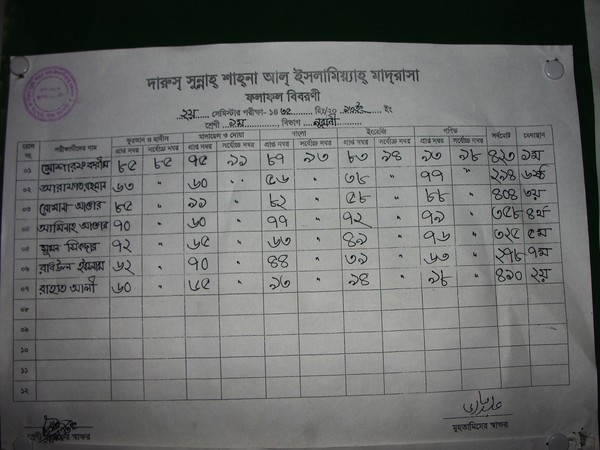 দারুস্ সুন্নাহ্ শাহ্না আল্ ইসলামিয়্যাহ্ মাদ্রাসা
ফলাফল বিবরণী
২য় সেমিস্টার পরীক্ষা- ১৪ হিঃ/২০ ইং
শ্রেণী ১ম, বিভাগ নূরানী
রোল নং পরীক্ষার্থীদের নাম কুরআন ও হাদীস মাসায়েল ও দোয়া বাংলা ইংরেজি গণিত সর্বমোট মেধাস্থান
প্রাপ্ত নম্বর সর্বোচ্চ নম্বর প্রাপ্ত নম্বর সর্বোচ্চ নম্বর প্রাপ্ত নম্বর সর্বোচ্চ নম্বর প্রাপ্ত নম্বর সর্বোচ্চ নম্বর প্রাপ্ত নম্বর সর্বোচ্চ নম্বর
০১ মোশারফ করীম ৮৫ ৮৫ ৭৫ ৯৯ ৮৭ ৯৩ ৮৩ ৯৪ ৯৩ ৯৮ ৪২৩ ১ম
০২ আরাফাত রহমান ৬৩ " ৬০ " ৫৬ " ৩৮ " ৭৭ " ২৯৪ ৬ষ্ঠ
০৩ রোমানা আক্তার ৮৫ " ৯৯ " ৮২ " ৫৮ " ৮৮ " ৪০৪ ৩য়
০৪ আমিনাহ আক্তার ৭০ " ৬০ " ৭৭ " ৭২ " ৭৯ " ৩৫৮ ৪র্থ
০৫ সুমন সিকদার ৭২ " ৬৫ " ৬৩ " ৪৯ " ৭৬ " ৩২৫ ৫ম
০৬ রবিউল ইসলাম ৬২ " ৭০ " ৪৪ " ৩৯ " ৬৩ " ২৭৮ ৭ম
০৭ রাহাত আলী ৬০ " " ৯৩ " ৯৪ " ৯৮ " ৪১০ ২য়
০৮
০৯
১০
১১
১২
স্বাক্ষর
মুহতামিমের স্বাক্ষর